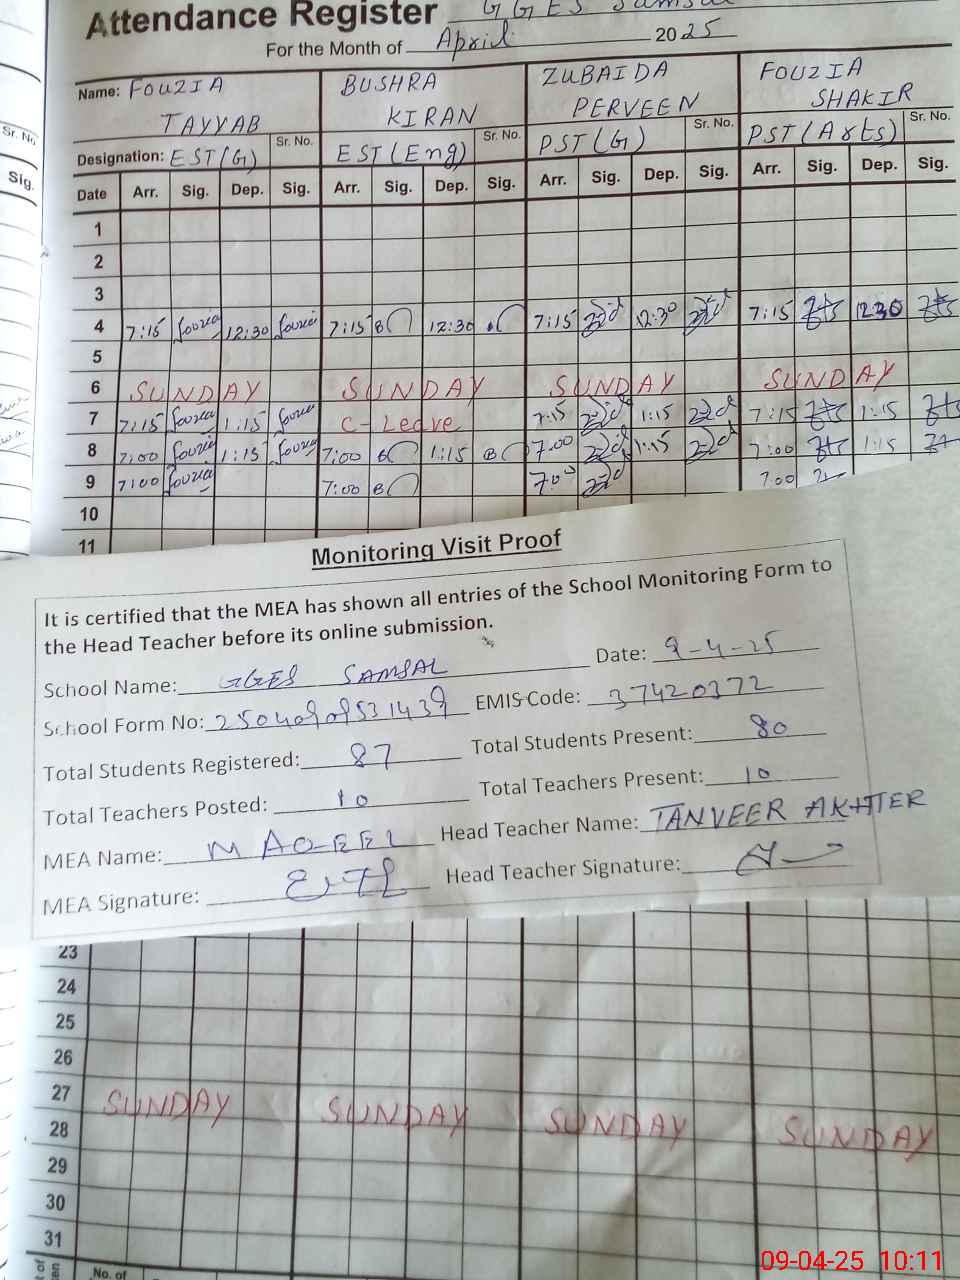 Attendance Register GGES Samsal
For the Month of April 2025
Name: FOUZIA TAYYAB BUSHRA KIRAN ZUBAIDA PERVEEN FOUZIA SHAKIR
Sr. No. Sr. No. Sr. No. Sr. No.
Designation: EST(G) EST(Eng) PST(G) PST(Arts)
Date Arr. Sig. Dep. Sig. Arr. Sig. Dep. Sig. Arr. Sig. Dep. Sig. Arr. Sig. Dep. Sig.
1
2
3
4 7:15 fouzia 12:30 fouzia 7:15 12:30 7:15 12:30 7:15 12:30
5
6 SUNDAY SUNDAY SUNDAY SUNDAY
7 7:15 fouzia 1:15 fouzia C-Leave 7:15 1:15 7:15 1:15
8 7:00 fouzia 1:15 fouzia 7:00 1:15 7:00 1:15 7:00 1:15
9 7:00 fouzia 7:00 7:00 7:00
10
11
Monitoring Visit Proof
It is certified that the MEA has shown all entries of the School Monitoring Form to
the Head Teacher before its online submission.
School Name: GGES SAMSAL Date: 9-4-25
School Form No: EMIS Code: 37420372
Total Students Registered: 87 Total Students Present: 80
Total Teachers Posted: 10 Total Teachers Present: 10
MEA Name: M AQEEL Head Teacher Name: TANVEER AKHTER
MEA Signature: Head Teacher Signature:
23
24
25
26
27 SUNDAY SUNDAY SUNDAY SUNDAY
28
29
30
31
No. of
09-04-25 10:11